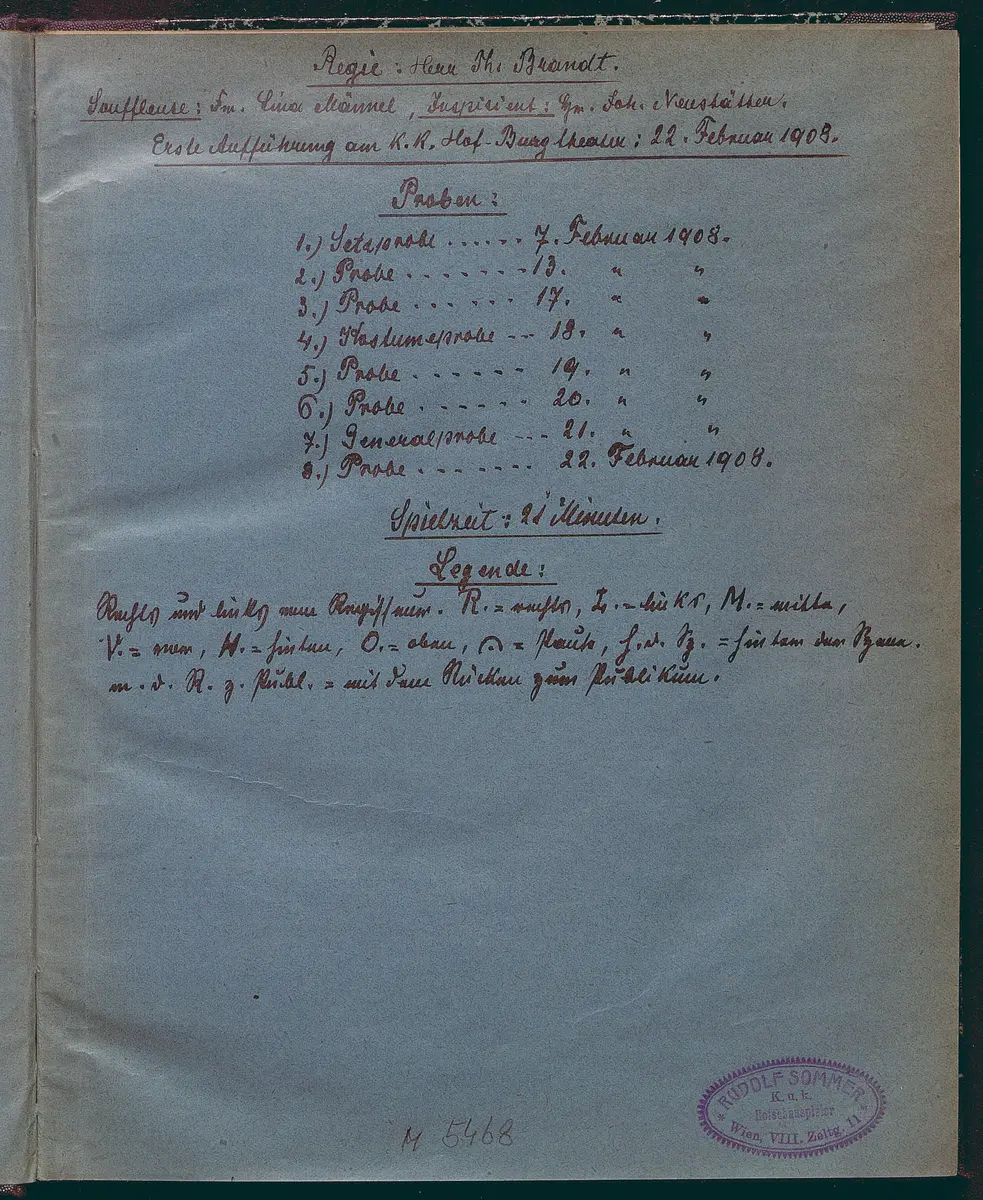 Regie: Herr Th. Brandt.
Souffleuse: Fr. Lina Männel, Inspizient: Hr. Joh. Neustätter.
Erste Aufführung am K. K. Hof-Burgtheater: 22. Februar 1908.
Proben:
1.) Setzprobe ...... 7. Februar 1908.
2.) Probe ....... 13. " "
3.) Probe ...... 17. " "
4.) Kostumeprobe -- 18. " "
5.) Probe ...... 19. " "
6.) Probe ...... 20. " "
7.) Generalprobe --- 21. " "
8.) Probe ....... 22. Februar 1908.
Spielzeit: 21 Minuten.
Legende:
Rechts und links vom Regisseur. R. = rechts, L. = links, M. = mitte,
V. = vorn, H. = hinten, O. = oben, 𝄐 = Pause, h. d. Sz. = hinter der Szene.
m. d. R. z. Publ. = mit dem Rücken zum Publikum.
RUDOLF SOMMER
K. u. k.
Hofschauspieler
Wien, VIII. Zeltg. 11
M 5468